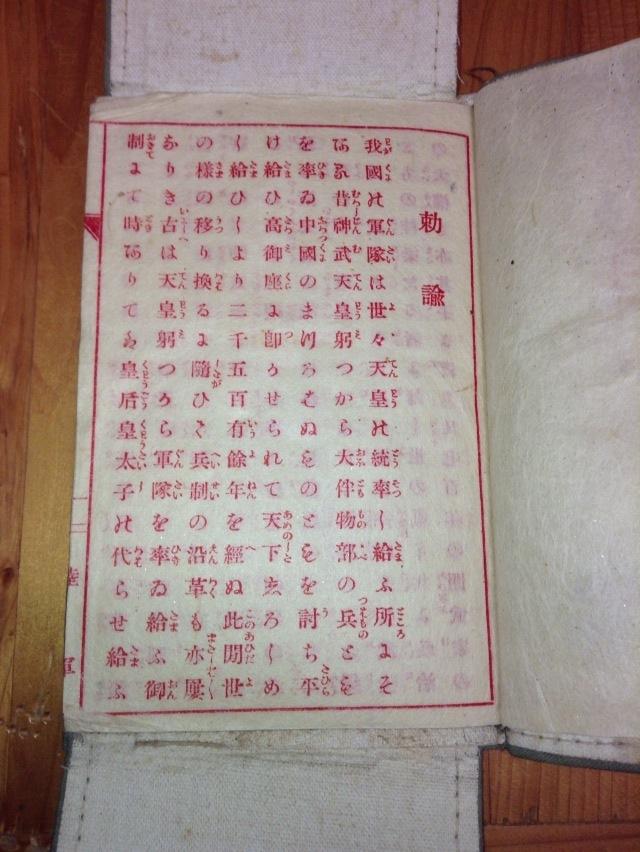 勅諭
我國の軍隊は世々天皇の統率し給ふ所にそ
ある昔神武天皇躬つから大伴物部の兵とも
を率ゐ中國のまつろはぬものともを討ち平
け給ひ高御座に即かせられて天下しろしめ
し給ひしより二千五百有餘年を經ぬ此間世
の樣の移り換るに隨ひて兵制の沿革も亦屢
なりき古は天皇躬つから軍隊を率ゐ給ふ御
制にて時ありては皇后皇太子の代らせ給ふ
二
陸軍